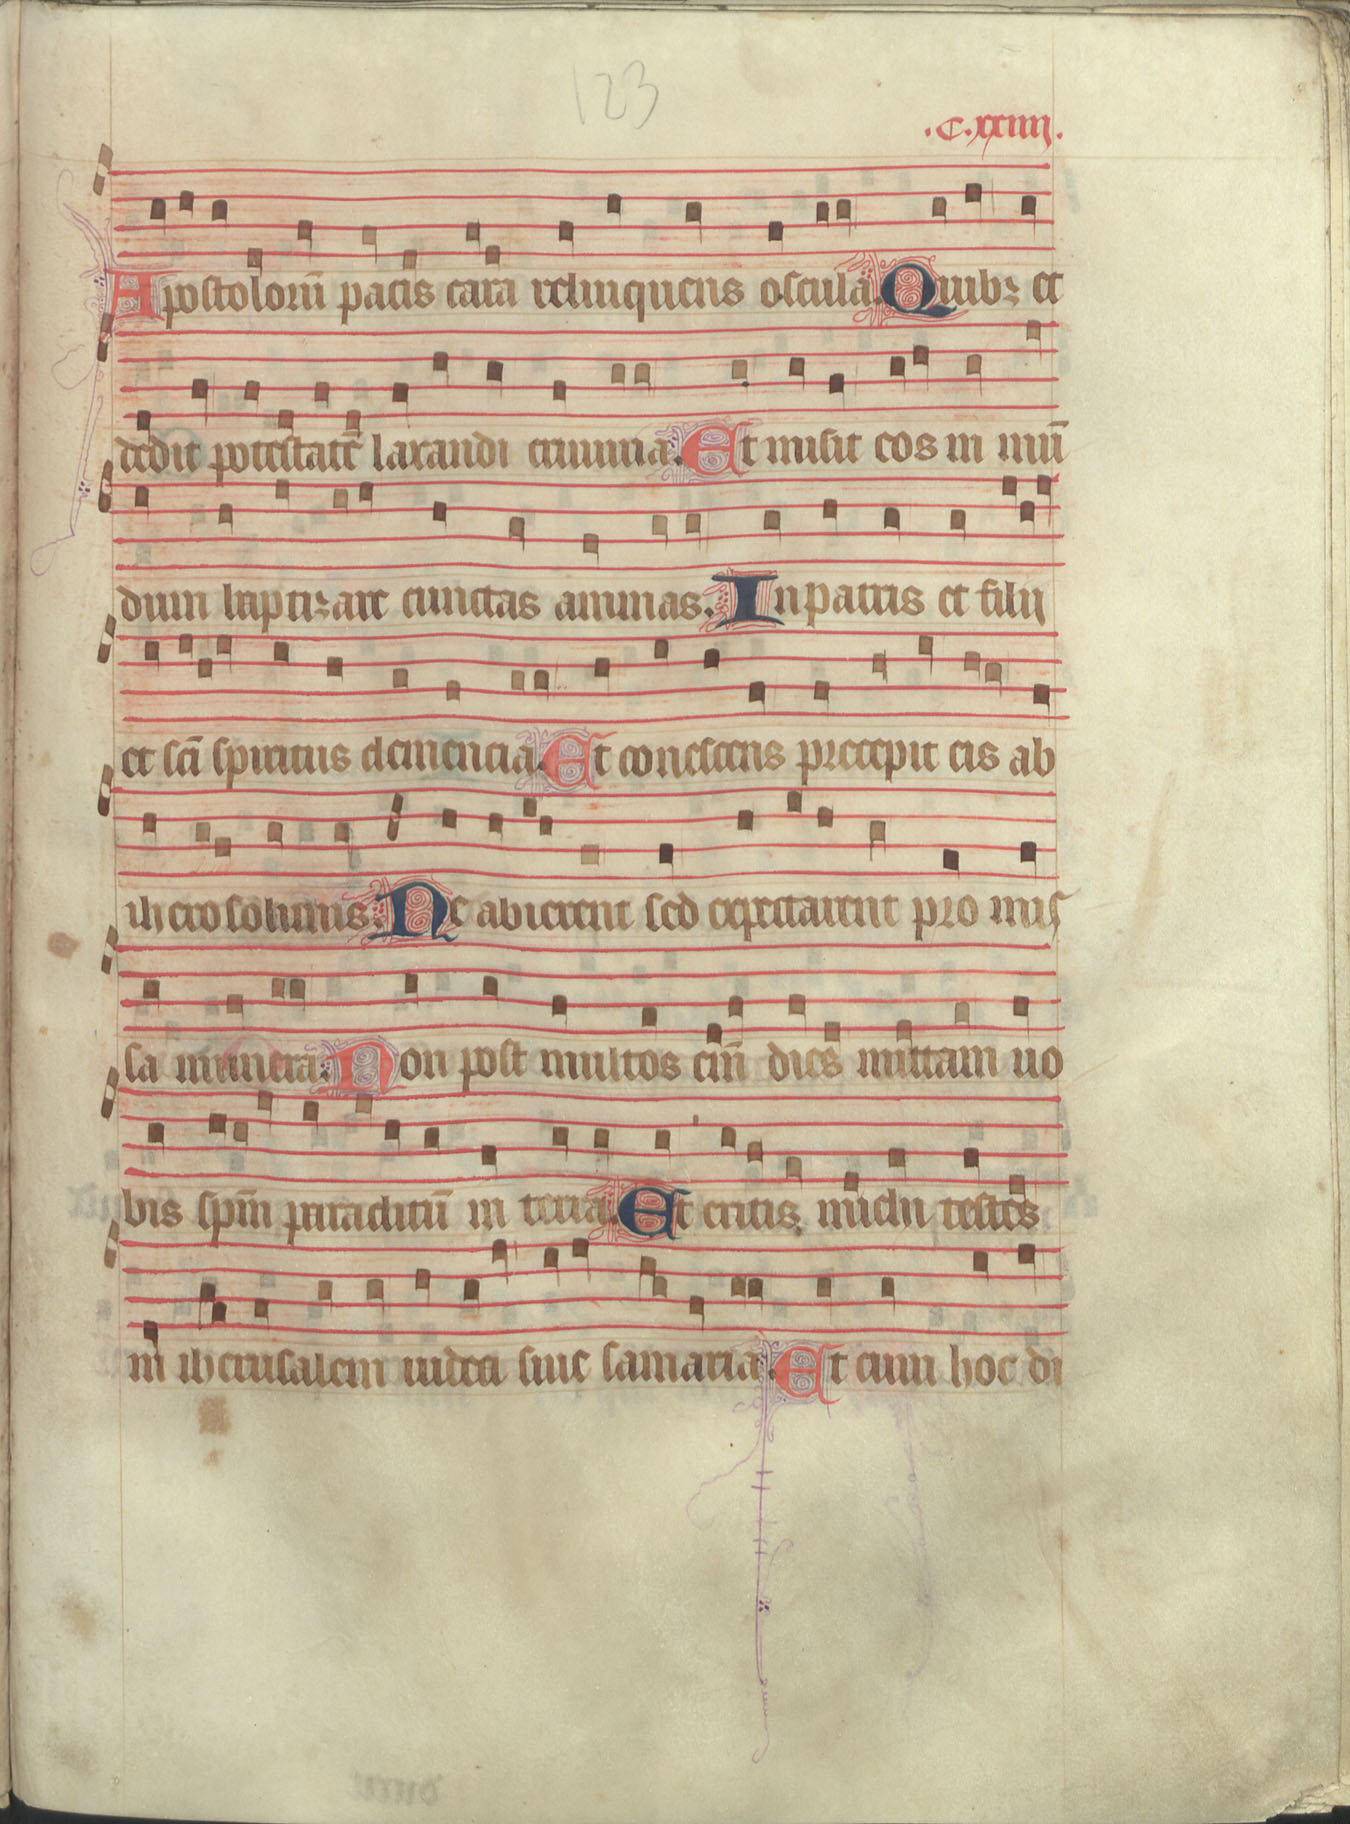 123
.C.xxiiij.
Apostoloru̅ pacis cara relinquens oscula. Quibꝫ et
dedit potestate̅ laxandi crimina. Et misit eos in mu̅
dum baptizare cunctas animas. In patris et filij
et sc̅i spiritus clemencia. Et conuescens precepit eis ab
iherosolimis. Ne abierent sed expectarent promis
sa munera. Non post multos eni̅ dies mittam uo
bis sp̅m paraclitu̅ in terra. Et eritis michi testes
in iherusalem iudea siue samaria. Et cum hoc di